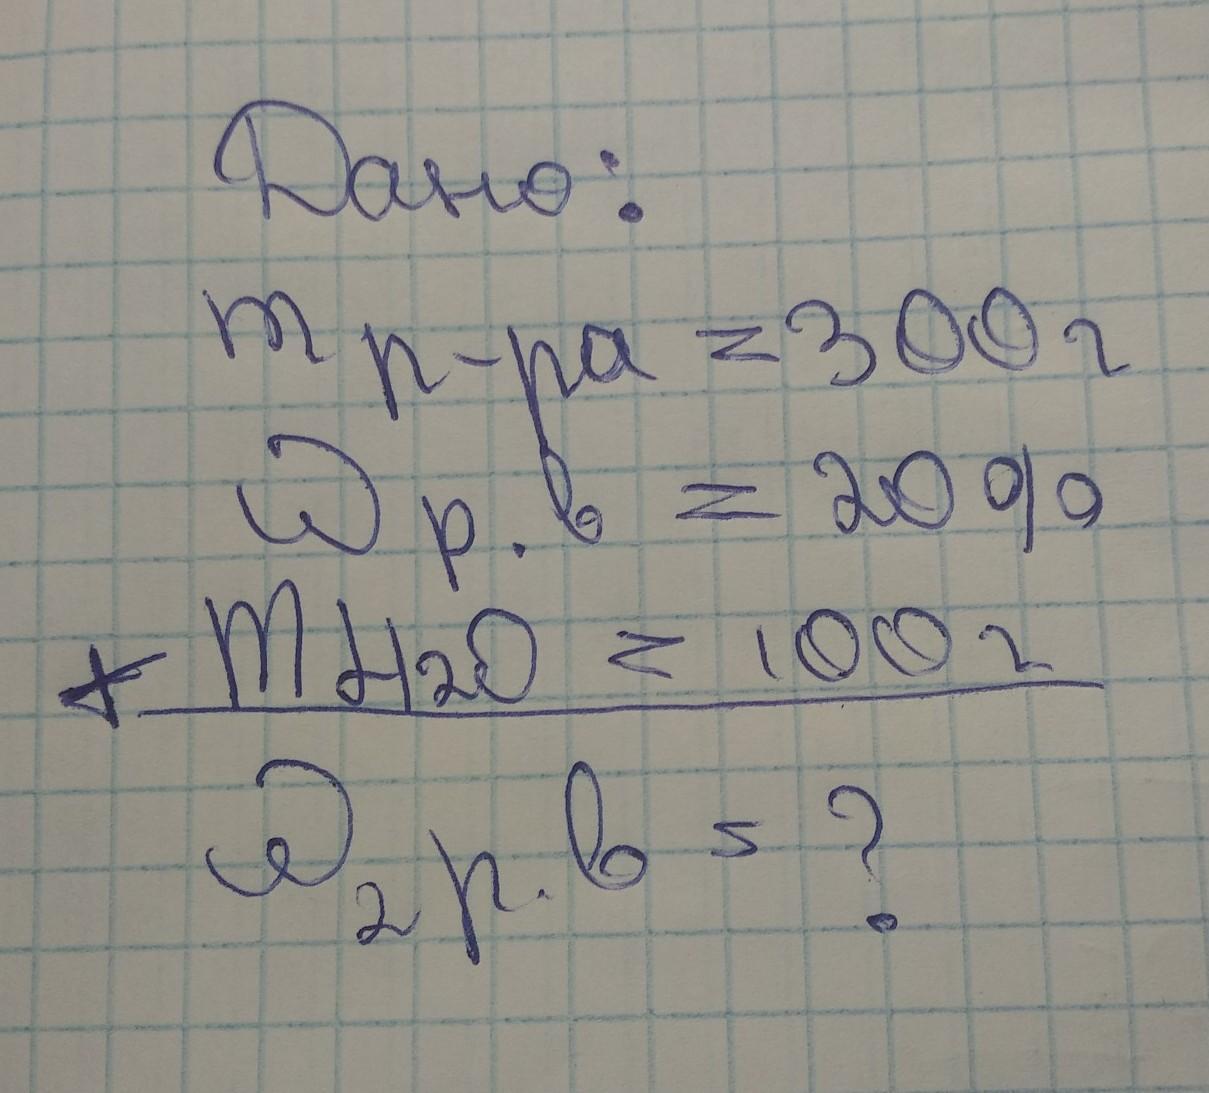 Дано:
m р-ра = 300 г
ω р.в = 20 %
+ m H2O = 100 г
ω2 р.в = ?